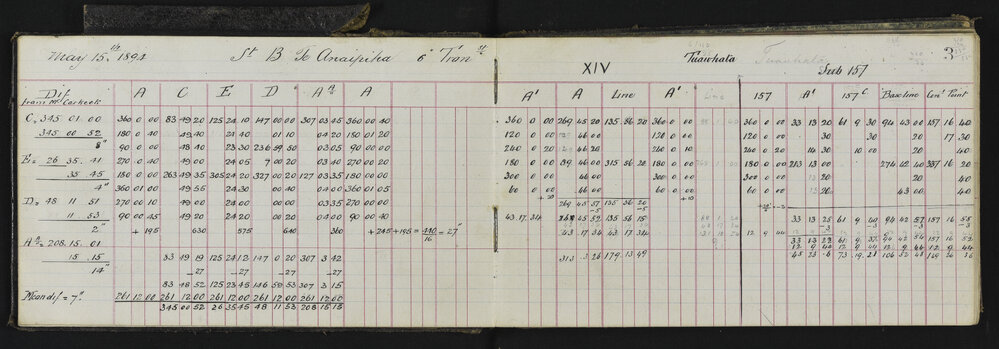 May 15th 1894 St B Te Anaipiha 6" Tran St
Dif A C E D A A
from Mr Carkeek
C, 345 01 00 360 0 00 83 49 20 125 24 10 147 00 00 307 03 45 360 00 40
345 00 52 180 0 40 49 40 24 40 01 10 04 20 180 01 20
8" 90 0 00 48 40 23 30 236 59 50 03 05 90 00 00
E= 26 35 41 270 0 40 49 00 24 05 7 00 20 03 40 270 00 20
35 45 180 0 00 263 49 35 305 24 20 327 00 20 127 03 35 180 00 00
4" 360 01 00 49 56 24 30 00 40 04 00 360 01 05
D= 48 11 51 270 00 10 49 00 24 00 00 00 03 35 270 00 00
11 53 90 00 45 49 20 24 20 00 20 04 00 90 00 40
2" + 195 630 575 640 360 + 245 + 195 = 440/16 = 27"
A = 208 15 01
15 15 83 49 19 125 24 12 147 0 20 307 3 42
14" -27 -27 -27 -27
83 48 52 125 23 45 146 59 53 307 3 15
Mean dif = 7" 261 12 00 261 12 00 261 12 00 261 12 00 261 12 00
345 00 52 26 35 45 48 11 53 208 15 15
Tuawhata 3
XIV Sub 157
A' A Line A' Line 157 A' 157 C Base line Cen' Point
360 0 00 269 45 20 135 56 20 360 0 00 360 0 00 33 13 20 61 9 30 94 43 00 157 16 40
120 0 00 46 00 120 0 00 120 0 00 30 30 20 17 30
240 0 20 46 20 240 0 10 240 0 20 14 30 10 00 20 40
180 0 00 89 46 00 315 56 20 180 0 00 180 0 00 213 13 00 274 42 40 337 16 20
300 0 00 46 00 300 0 00 300 0 00 13 20 20 40
60 0 00 46 00 60 0 00 60 0 00 13 20 43 00 40
+ 20 269 45 57 135 56 20 + 10
-5 -5
43 17 34 269 45 52 135 56 15 33 13 25 61 9 40 94 42 57 157 16 55
43 17 34 43 17 34 12 9 44 -3 -3 -3 -3
313 3 26 179 13 49 33 13 22 61 9 37 94 42 54 157 16 52
12 9 44 12 9 44 12 9 44 12 9 44
45 23 6 73 19 21 106 52 38 169 26 36